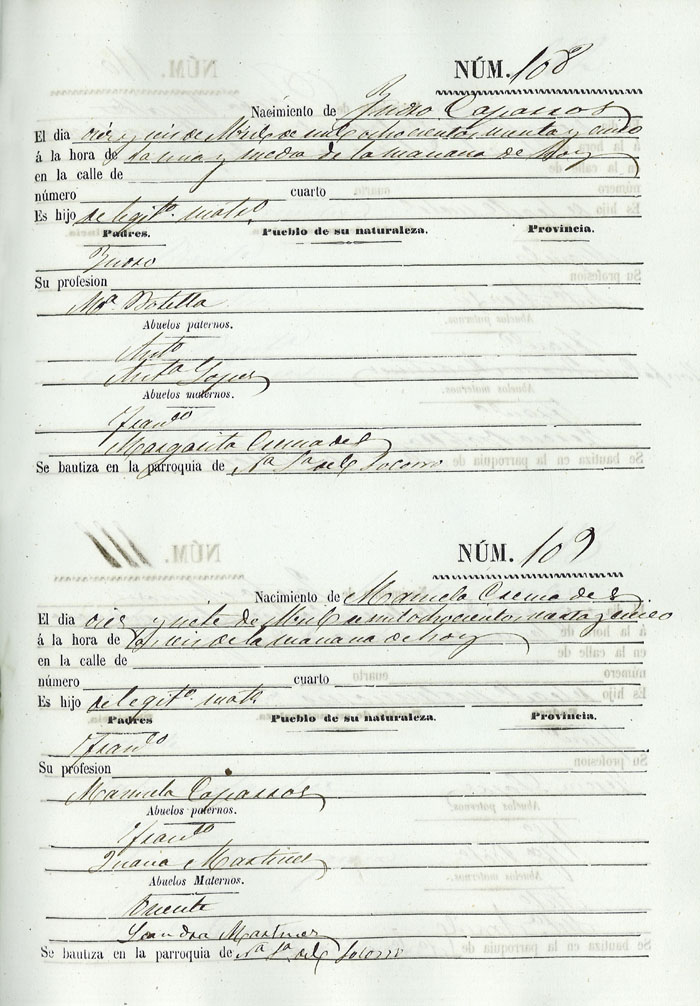 NÚM. 108
Nacimiento de Pedro Caparros
El dia diez y seis de Abril de mil ochocientos sesenta y cinco
á la hora de la una y media de la mañana de hoy
en la calle de
número cuarto
Es hijo de legit.º mat.º
Padres. Pueblo de su naturaleza. Provincia.
Pedro
Su profesion
M.ª Botella
Abuelos paternos.
Ant.º
Ant.ª Lopez
Abuelos maternos.
Fran.co
Margarita Cremades
Se bautiza en la parroquia de N.ª S.ª del Socorro
NÚM. 109
Nacimiento de Manuela Cremades
El dia diez y siete de Abril de mil ochocientos sesenta y cinco
á la hora de las seis de la mañana de hoy
en la calle de
número cuarto
Es hijo de legit.º mat.º
Padres Pueblo de su naturaleza. Provincia.
Fran.co
Su profesion
Manuela Caparros
Abuelos paternos.
Fran.co
Juana Martinez
Abuelos Maternos.
Vicente
Martinez
Se bautiza en la parroquia de N.ª S.ª del Socorro